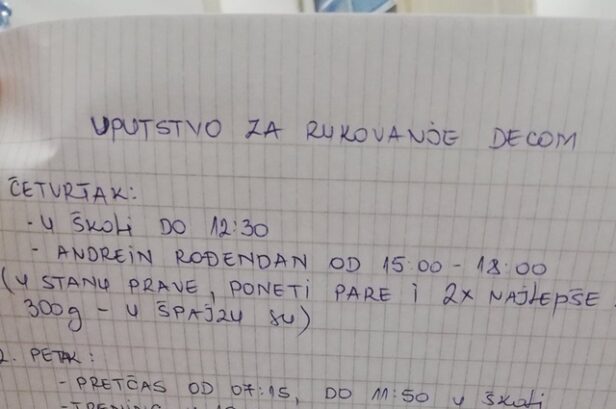 UPUTSTVO ZA RUKOVANJE DECOM
ČETVRTAK:
- U ŠKOLI DO 12:30
- ANDREIN ROĐENDAN OD 15:00 - 18:00
(U STANU PRAVE, PONETI PARE I 2X NAJLEPŠE
300g - U ŠPAJZU SU)
2. PETAK:
- PRETČAS OD 07:15, DO 11:50 U ŠKOLI
- TRENING